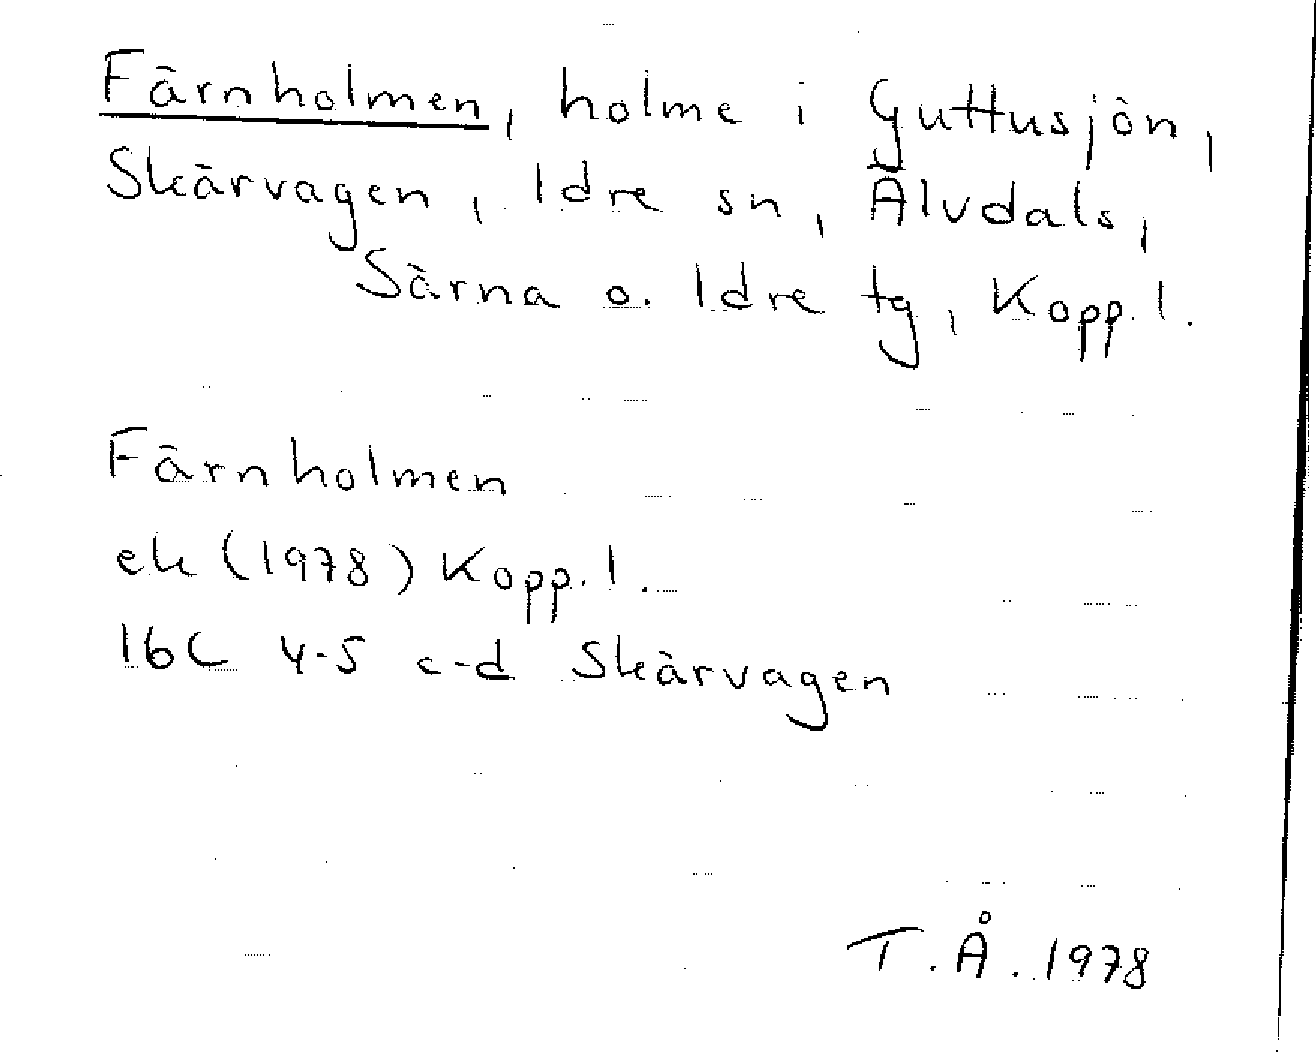 Färnholmen, holme i Guttusjön,
Skärvagen, Idre sn, Älvdals,
Särna o. Idre tg, Kopp. l.
Färnholmen
ek (1978) Kopp. l.
16C 4-5 c-d Skärvagen
T. Å. 1978